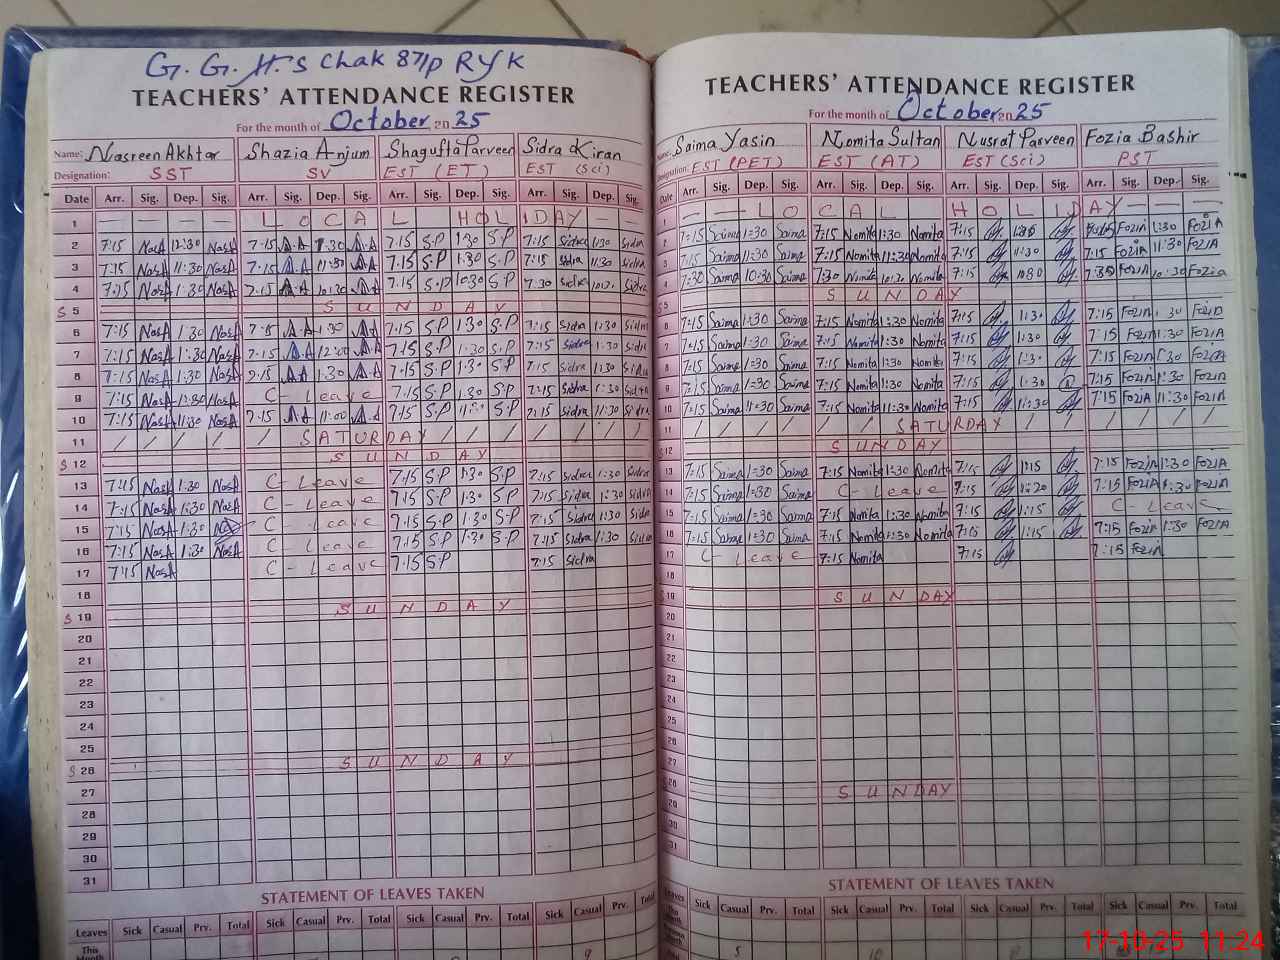 G. G. H. S Chak 87/P RYK
TEACHERS' ATTENDANCE REGISTER
For the month of October 2025
Name: Nasreen Akhtar Shazia Anjum Shagufta Parveen Sidra Kiran
Designation: SST SV EST (ET) EST (Sci)
Date Arr. Sig. Dep. Sig. Arr. Sig. Dep. Sig. Arr. Sig. Dep. Sig. Arr. Sig. Dep. Sig.
1 LOCAL HOLIDAY
2 7:15 NasA 12:30 NasA 7-15 A.A 1:30 A.A 7:15 S.P 1:30 S.P 7:15 Sidra 1:30 Sidra
3 7:15 NasA 11:30 NasA 7-15 A.A 11:30 A.A 7:15 S.P 1:30 S.P 7:15 Sidra 11:30 Sidra
4 7:15 NasA 1:30 NasA 7-15 A.A 10:30 A.A 7:15 S.P 10:30 S.P 7:30 Sidra Sidra
S 5 SUNDAY
6 7:15 NasA 1:30 NasA A.A 1:30 A.A 7:15 S.P 1:30 S.P 7:15 Sidra 1:30 Sidra
7 7:15 NasA 1:30 NasA 7-15 A.A 12:00 A.A 7:15 S.P 1:30 S.P 7:15 Sidra 1:30 Sidra
8 7:15 NasA 1:30 NasA 7-15 A.A 1:30 A.A 7:15 S.P 1:30 S.P 7:15 Sidra 1:30 Sidra
9 7:15 NasA 1:30 NasA C-Leave 7:15 S.P 1:30 S.P 7:15 Sidra 1:30 Sidra
10 7:15 NasA 11:30 NasA 7-15 A.A 11:00 A.A 7:15 S.P 11:30 S.P 7:15 Sidra 11:30 Sidra
11 SATURDAY
S 12 SUNDAY
13 7:15 NasA 1:30 NasA C-Leave 7:15 S.P 1:30 S.P 7:15 Sidra 1:30 Sidra
14 7:15 NasA 1:30 NasA C-Leave 7:15 S.P 1:30 S.P 7:15 Sidra 1:30 Sidra
15 7:15 NasA 1:30 C-Leave 7:15 S.P 1:30 S.P 7:15 Sidra 1:30 Sidra
16 7:15 NasA 1:30 NasA C-Leave 7:15 S.P 1:30 S.P 7:15 Sidra 1:30 Sidra
17 7:15 NasA C-Leave 7:15 S.P 7:15 Sidra
18
S 19 SUNDAY
20
21
22
23
24
25
S 26 SUNDAY
27
28
29
30
31
STATEMENT OF LEAVES TAKEN
Leaves Sick Casual Prv. Total Sick Casual Prv. Total Sick Casual Prv. Total Sick Casual Prv. Total
This Month
TEACHERS' ATTENDANCE REGISTER
For the month of October 2025
Name: Saima Yasin Nomita Sultan Nusrat Parveen Fozia Bashir
Designation: EST (PET) EST (AT) EST (Sci) PST
Date Arr. Sig. Dep. Sig. Arr. Sig. Dep. Sig. Arr. Sig. Dep. Sig. Arr. Sig. Dep. Sig.
1 LOCAL HOLIDAY
2 7:15 Saima 1:30 Saima 7:15 Nomita 1:30 Nomita 7:15 Fozia 1:30 Fozia
3 7:15 Saima 11:30 Saima 7:15 Nomita 11:30 Nomita 7:15 11:30 7:15 Fozia 11:30 Fozia
4 7:30 Saima 10:30 Saima 7:30 Nomita Nomita 7:15 10:30 7:30 Fozia 10:30 Fozia
S 5 SUNDAY
6 7:15 Saima 1:30 Saima 7:15 Nomita 1:30 Nomita 7:15 7:15 Fozia 1:30 Fozia
7 7:15 Saima 1:30 Saima 7:15 Nomita 1:30 Nomita 7:15 1:30 7:15 Fozia 1:30 Fozia
8 7:15 Saima 1:30 Saima 7:15 Nomita 1:30 Nomita 7:15 1:30 7:15 Fozia 1:30 Fozia
9 7:15 Saima 1:30 Saima 7:15 Nomita 1:30 Nomita 7:15 1:30 7:15 Fozia 1:30 Fozia
10 7:15 Saima 11:30 Saima 7:15 Nomita 11:30 Nomita 7:15 11:30 7:15 Fozia 11:30 Fozia
11 SATURDAY
S 12 SUNDAY
13 7:15 Saima 1:30 Saima 7:15 Nomita 1:30 Nomita 7:15 1:15 7:15 Fozia 1:30 Fozia
14 7:15 Saima 1:30 Saima C-Leave 7:15 7:15 Fozia 1:30 Fozia
15 7:15 Saima 1:30 Saima 7:15 Nomita 1:30 Nomita 7:15 1:15 C-Leave
16 7:15 Saima 1:30 Saima 7:15 Nomita 1:30 Nomita 7:15 1:15 7:15 Fozia 1:30 Fozia
17 C-Leave 7:15 Nomita 7:15 7:15 Fozia
18
S 19 SUNDAY
20
21
22
23
24
25
26
27
S 28 SUNDAY
29
30
31
STATEMENT OF LEAVES TAKEN
Leaves Sick Casual Prv. Total Sick Casual Prv. Total Sick Casual Prv. Total Sick Casual Prv. Total
17-10-25 11:24